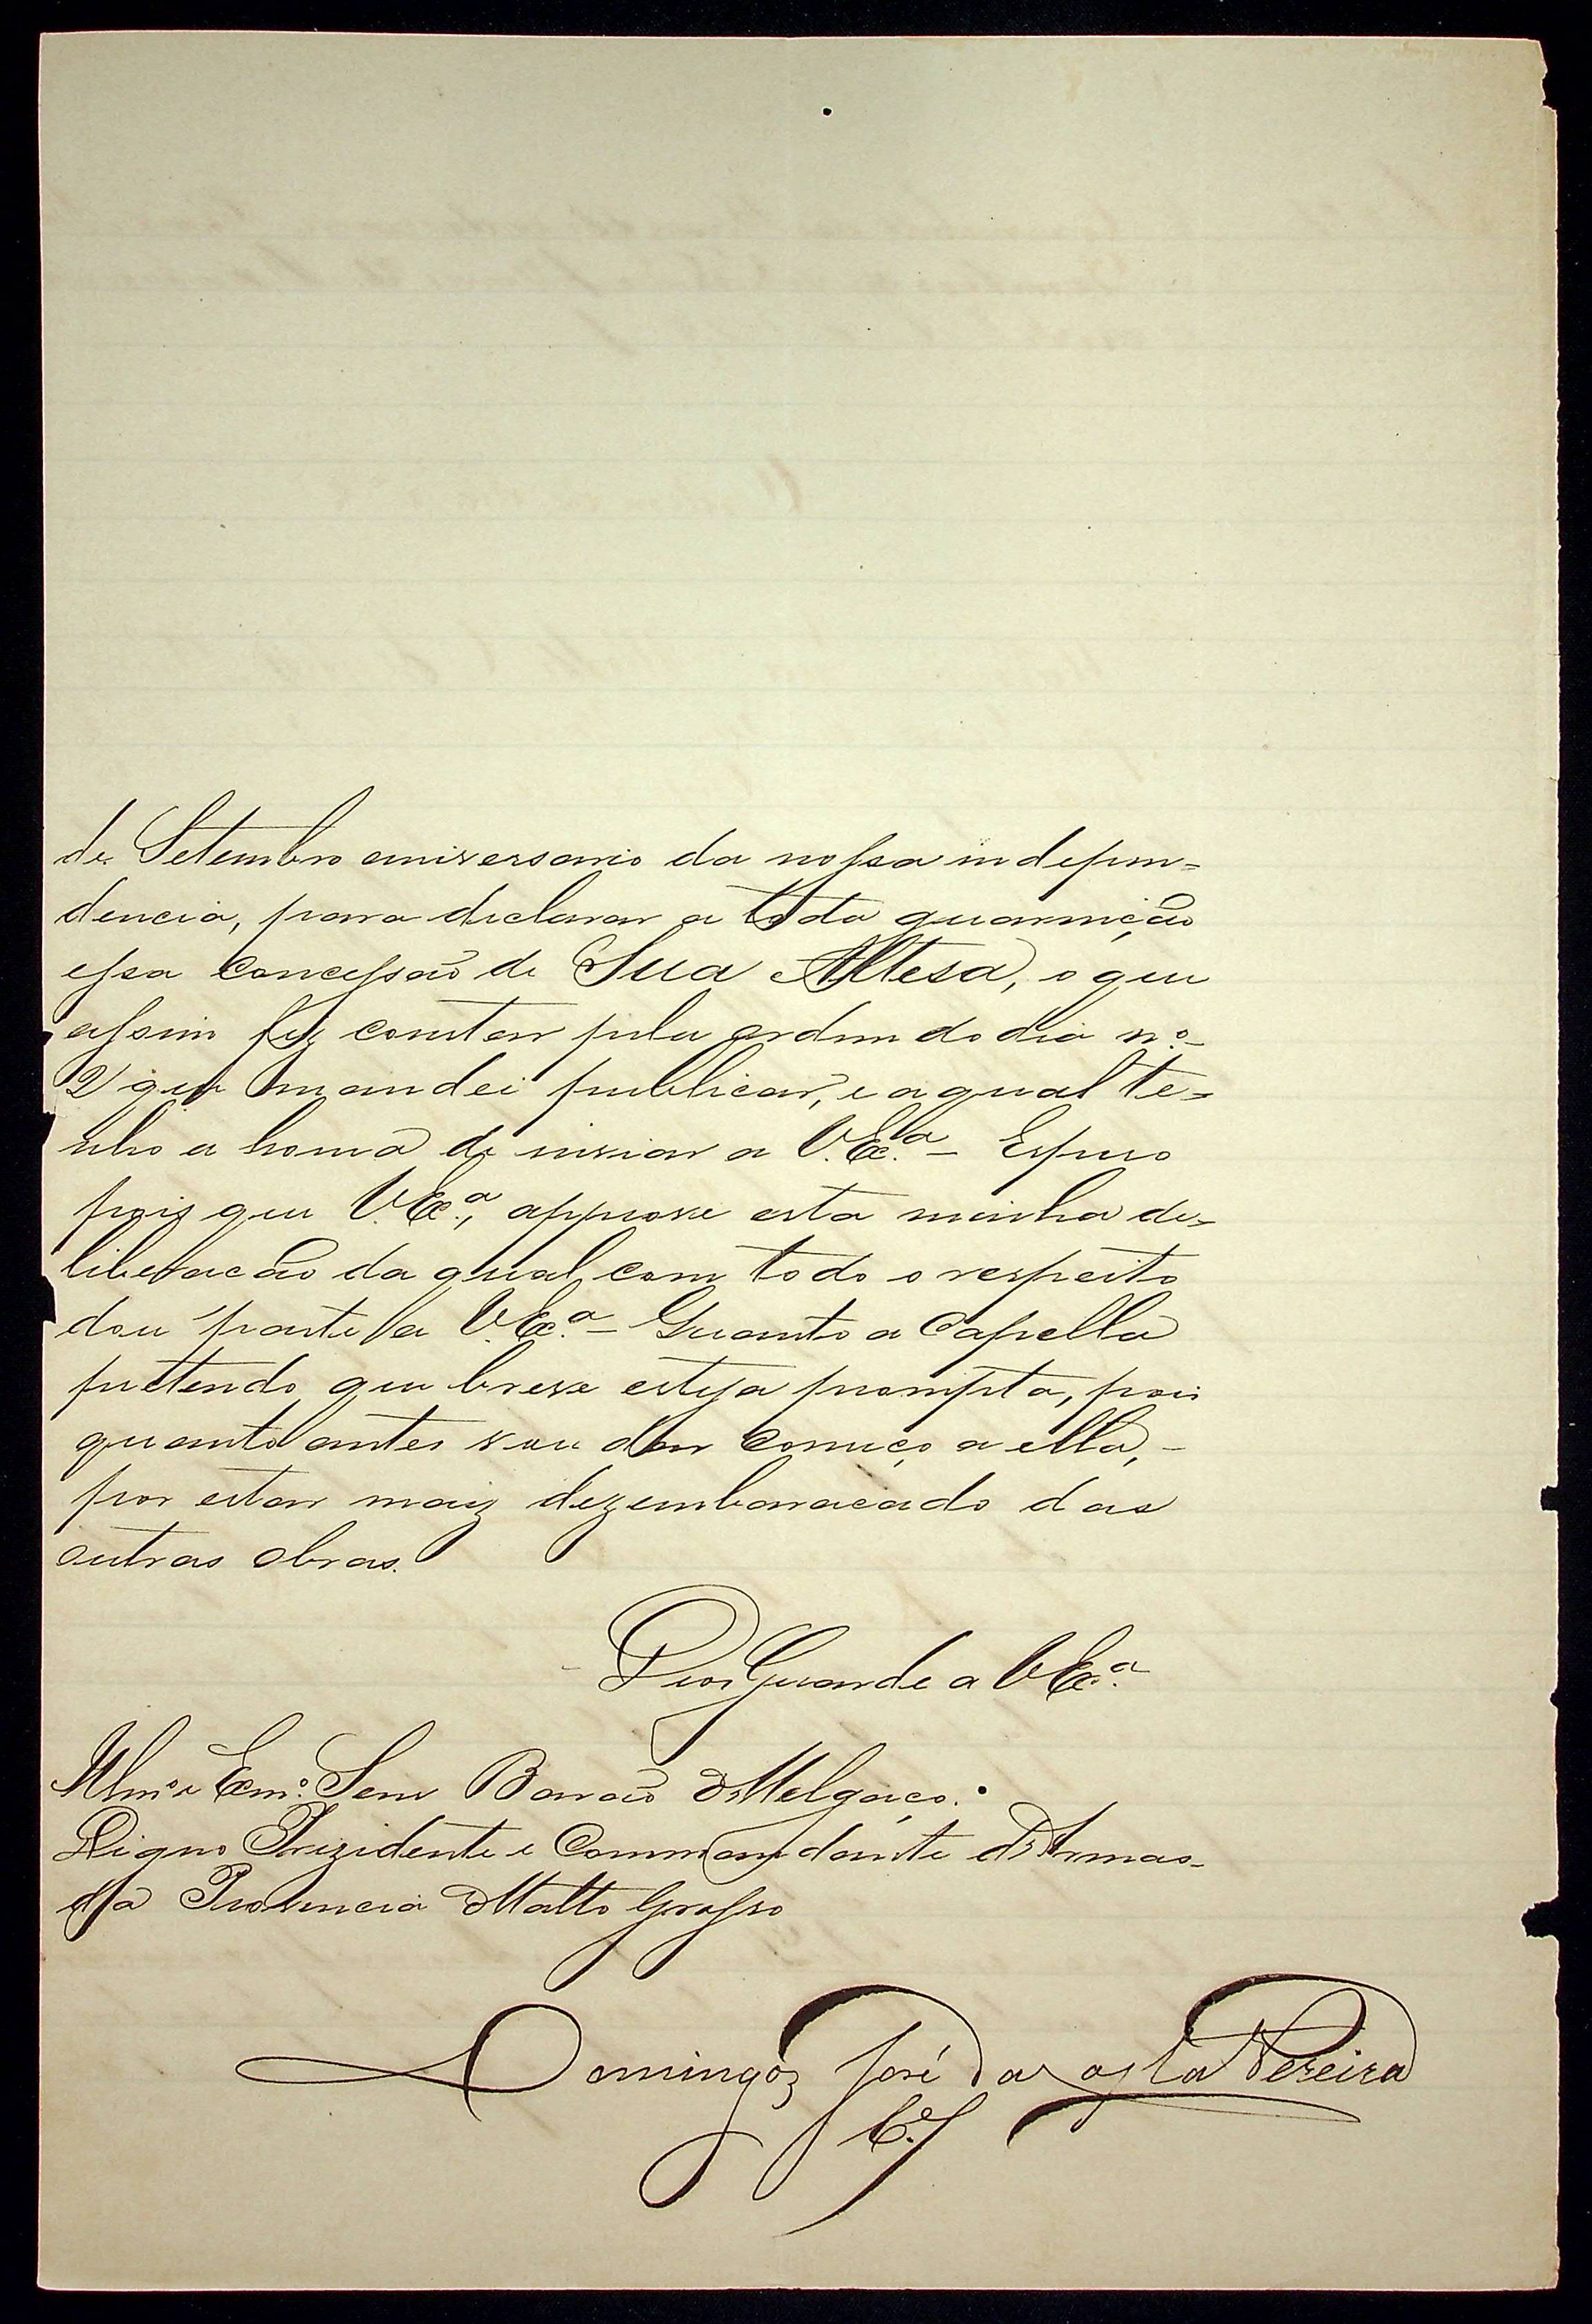 de Setembro aniversario da nossa indepen=
dencia, para declarar a toda guarnição
essa concessão de Sua Altesa, o que
assim fiz constar pela ordem do dia nº
2 que mandei publicar, e a qual te=
nho a honra de inviar a V.Exª.– Espero
pois que V.Exª., approve esta minha de=
liberacão da qual com todo o respeito
dou parte a V.Exª.– Quanto a Capella
pretendo que breve esteja prompta, pois
quanto antes vou dar começo a ella, –
por estar maiz dezembaracado das
outras obras.
Deos Guarde a V Exª.
Illmº e Exmº. Senr Barão de Melgaço.
Digno Prezidente e Commandante das Armas
da Provincia de Matto Grosso
Domingos José da Costa Pereira